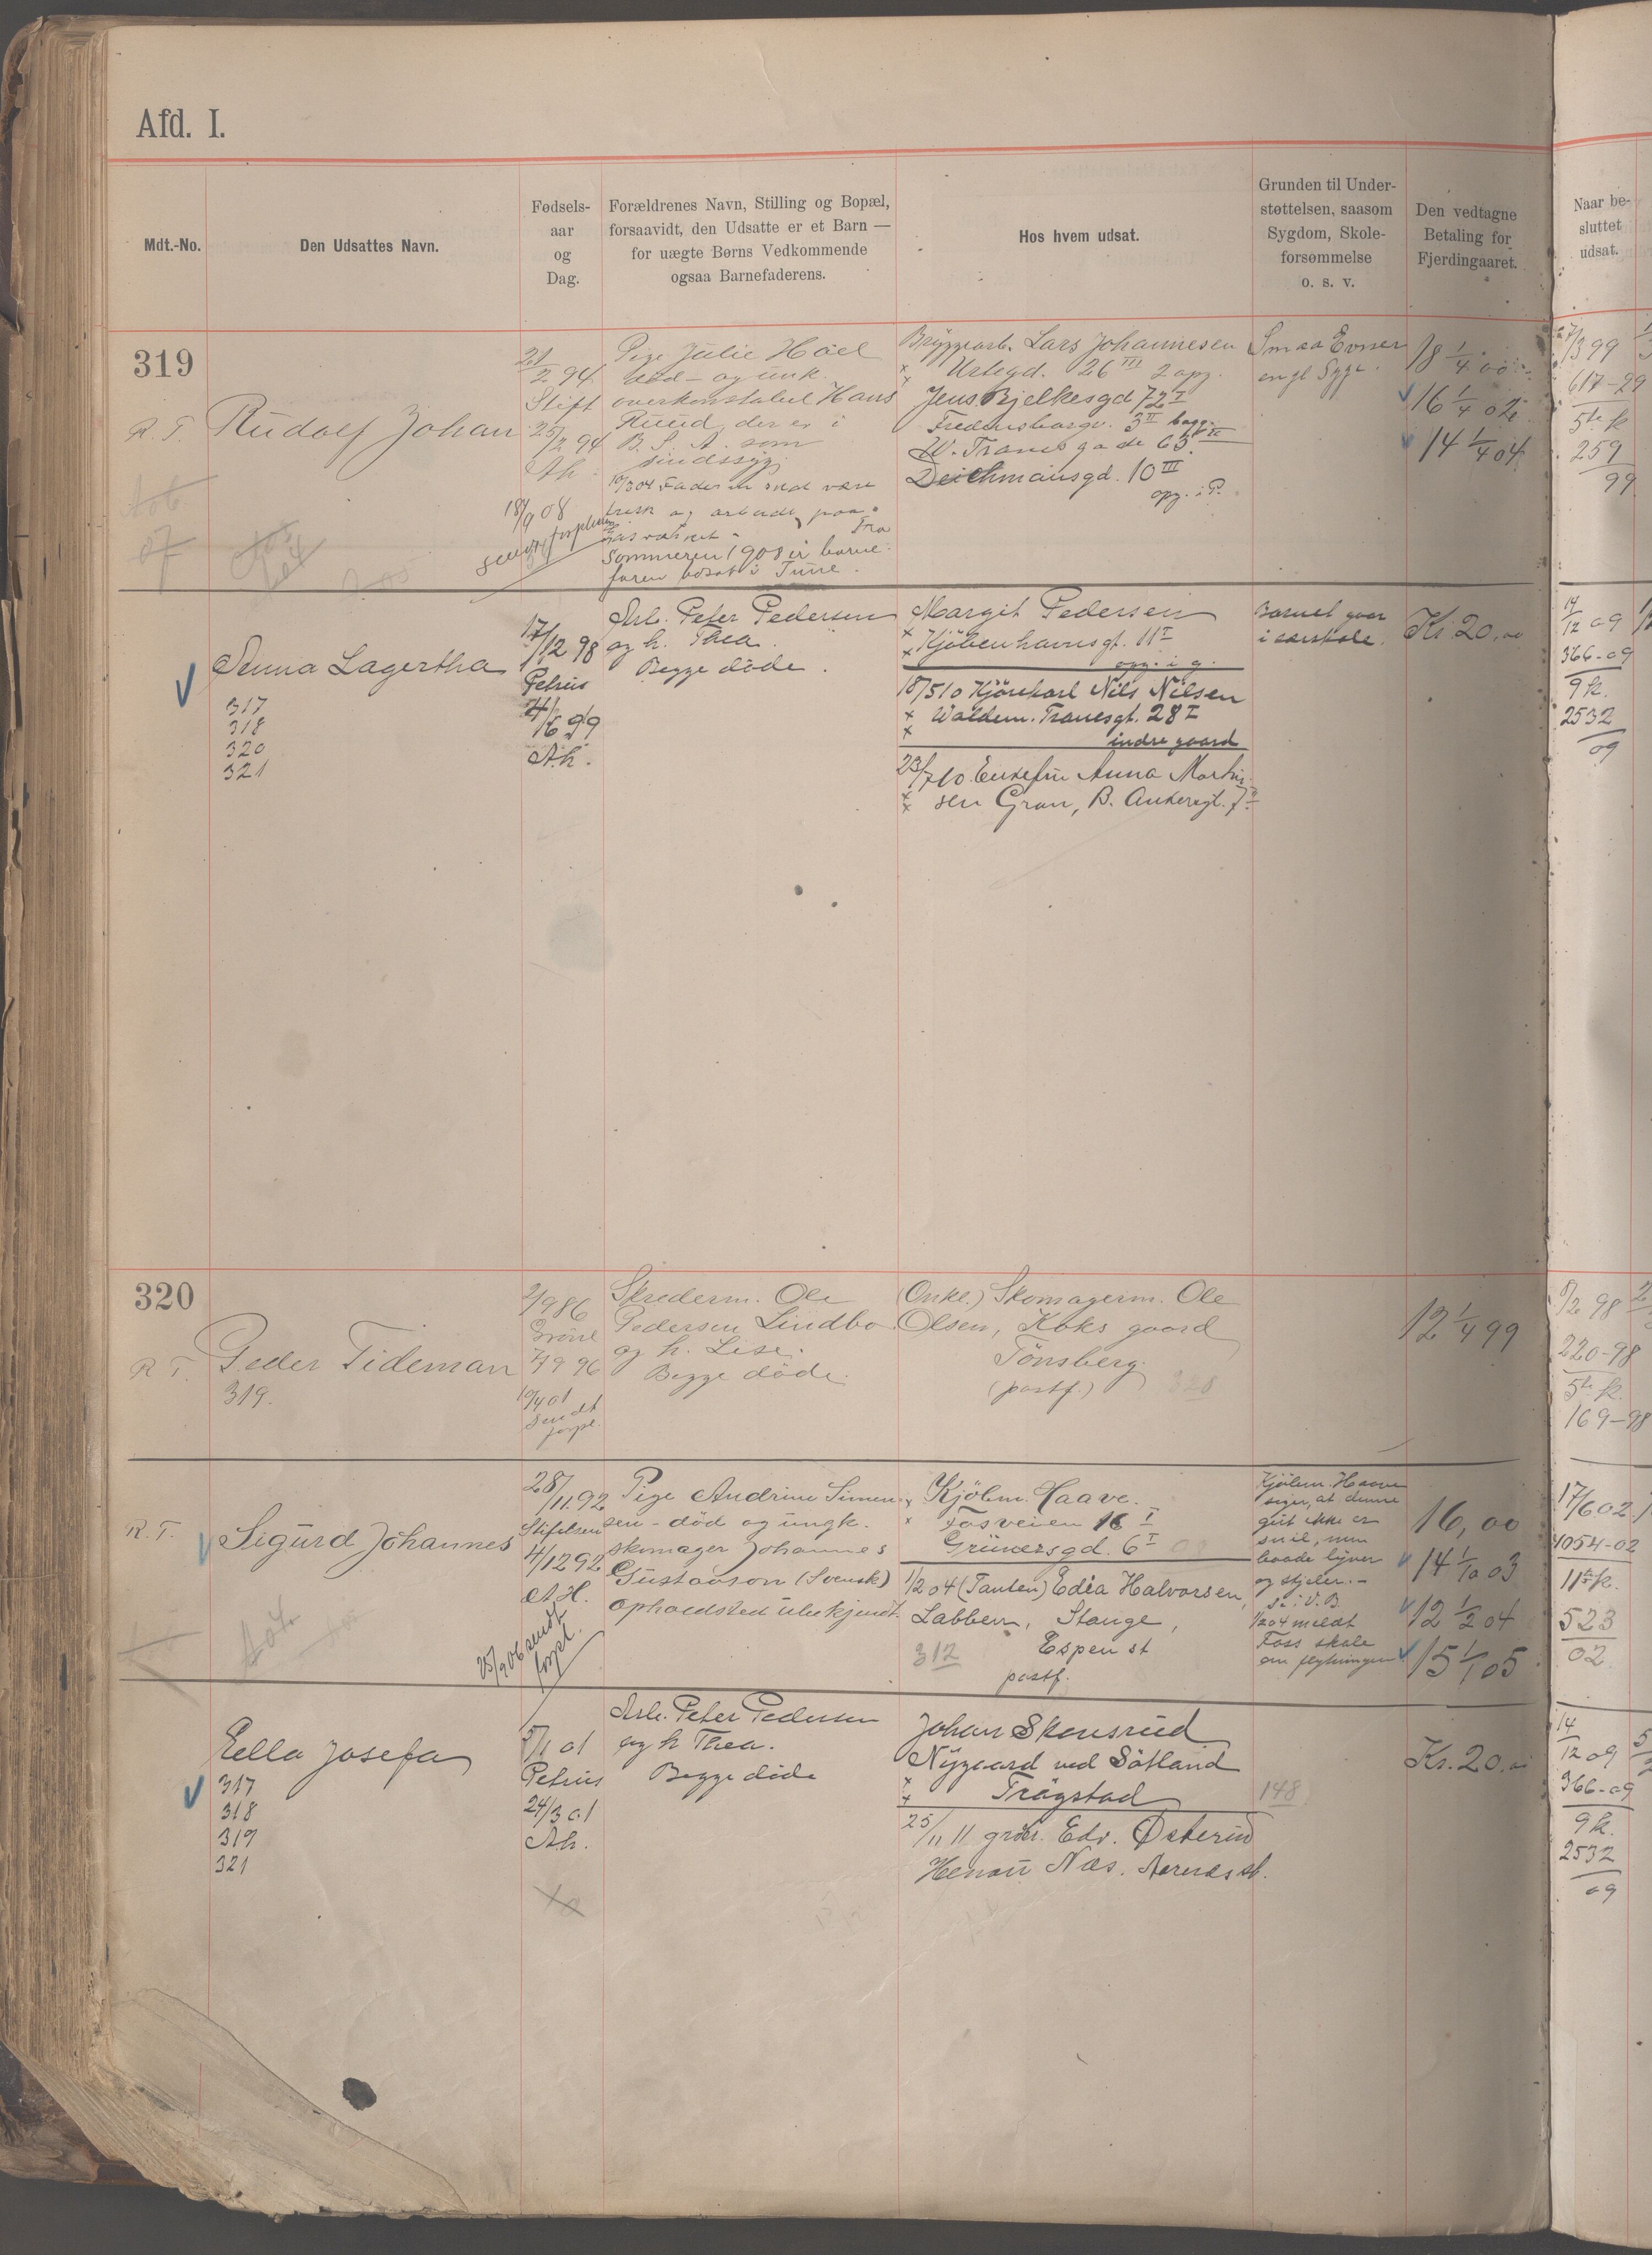 Afd. I.
Mdt.-No.
Den Udsattes Navn.
Fødsels-
aar
og
Dag.
Forældrenes Navn, Stilling og Bopæl,
forsaavidt, den Udsatte er et Barn —
for uægte Børns Vedkommende
ogsaa Barnefaderens.
Hos hvem udsat.
Grunden til Under-
støttelsen, saasom
Sygdom, Skole-
forsømmelse
o. s. v.
Den vedtagne
Betaling for
Fjerdingaaret.
Naar be-
sluttet
udsat.
319
R. T.
Rudolf Johan
21/2 94
Stift
25/2 94
Ah.
18/9 08
Pige Julie Hoel
død - og unk.
overkonstabel Hans
Ruud, der er i
B. S. A. som
sindssyg.
Fra
Sommeren 1908 er barne-
faren bosat i Tune.
Bryggearb. Lars Johannesen
Urtegd. 26 III 2 opg.
Jens Bjelkesgd 72 I
Fredensborgv. 3 II
W. Tranes gade 65
Deichmansgd. 10 III
opg. i P.
Smaa Evner
engl Syge.
18 1/4 00
16 1/4 02
14 1/4 04
7/3 99
617-99
5te k
259
99
Anna Lagertha
317
318
320
321
17/12 98
Petrus
4/6 99
A.h.
Arb. Peter Pedersen
og h. Thea.
Begge døde.
Margit Pedersen
Kjøbenhavnsgt. 11 I
opg. i g.
18/5 10 Kjørekarl Nils Nilsen
Waldem. Tranesgt. 28 I
indre gaard
23/7 10. Enkefru Anna Martin-
sen Gran, B. Ankersgt. 7
Barnet gaar
i særskole.
Kr. 20,00
14/12 09
366-09
9 k.
2532
09
320
R T.
Peder Tideman
319.
2/9 86
7/9 96
10/4 01
sendt
forpl.
Skrederm. Ole
Pedersen Lindbo
og h. Lise.
Begge døde.
(Onkel.) Skomagerm. Ole
Olsen, Koks gaard
Tönsberg.
(postf.)
328
12 1/4 99
8/2 98
220-98
5te k.
169-98
R. T.
Sigurd Johannes
28/11 92
Stifelsen
4/12 92
A.H.
25/9 06 sendt
forpl.
Pige Andrine Simen-
sen - död og ungk.
skomager Johannes
Gustavson (Svensk)
opholdsted ubekjendt.
Kjölm. Haave.
Fosveien 16 I
Grünersgd. 6 I
1/2 04 (Tanten) Edia Halvorsen,
Labben, Stange,
312
Espen st
postf.
Kjølm. Haave
siger, at denne
gut ikke er
snil, men
baade lyver
og stjeler. -
se: V.B.
1/2 04 meldt
Foss skole
om flytningen
16,00
14 1/10 03
12 1/2 04
15 1/1 05
17/6 02
4054-02
11te k.
523
02
Ella Josefa
317
318
319
321
5/1 01
Petrus
24/3 01
A.h.
Arb. Peter Pedersen
og h Thea.
Begge döde
Johan Skensrud
Nygaard ved Sötland
Trögstad
148
25/11 11 grdbr. Edv. Østerud
Henau Næs. Aarnæs st.
Kr. 20,00
14/12 09
366-09
9 k.
2532
09